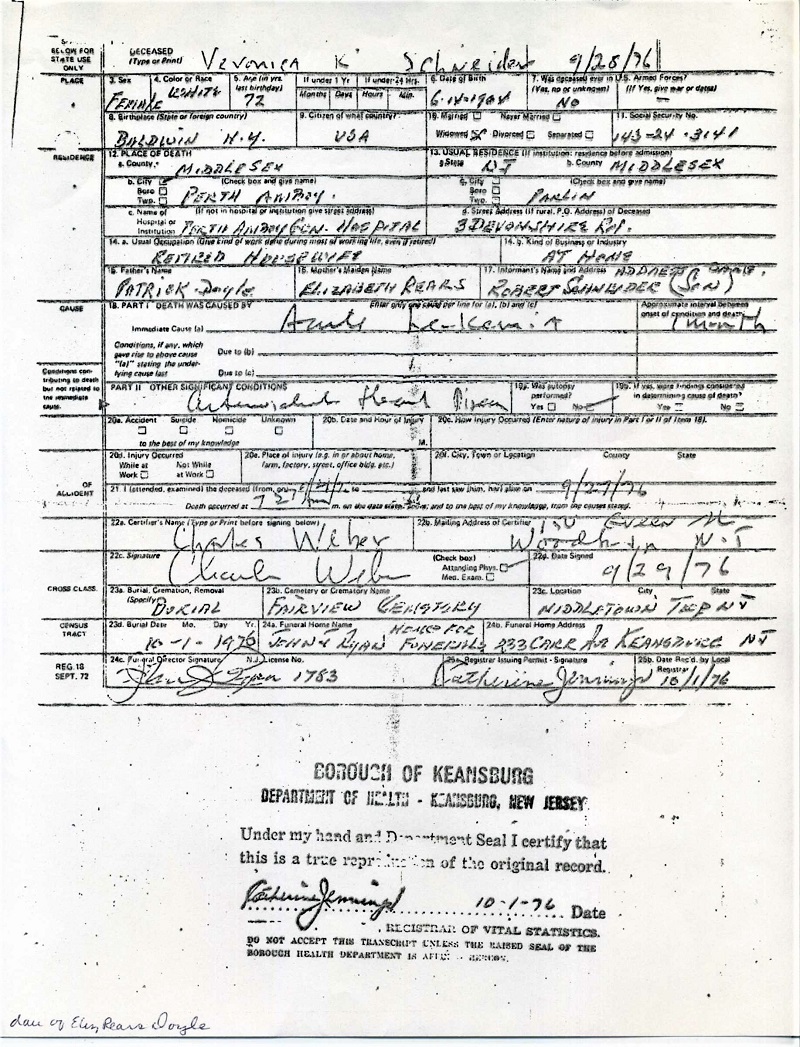 BELOW FOR STATE USE ONLY
DECEASED (Type or Print) Veronica K Schneider 9/28/76
PLACE
3. Sex Female
4. Color or Race White
5. Age (in yrs. last birthday) 72
If under 1 Yr. Months Days
If under 24 Hrs. Hours Min.
6. Date of Birth
7. Was deceased ever in U.S. Armed Forces? (Yes, no or unknown) (If Yes, give war or dates) No
8. Birthplace (State or foreign country) BALDWIN N.Y.
9. Citizen of what country? USA
10. Married Never Married Widowed Divorced Separated
11. Social Security No. 143-24-3141
RESIDENCE
12. PLACE OF DEATH
a. County MIDDLESEX
13. USUAL RESIDENCE (If institution: residence before admission)
a. State NJ b. County MIDDLESEX
b. City Boro Twp. (Check box and give name) PERTH AMBOY
c. City Boro Twp. (Check box and give name) PARLIN
c. Name of Hospital or Institution (If not in hospital or institution give street address) PERTH AMBOY GEN. HOSPITAL
d. Street Address (If rural, P.O. Address) of Deceased 3 DEVONSHIRE
14. a. Usual Occupation (Give kind of work done during most of working life, even if retired) RETIRED HOUSEWIFE
14. b. Kind of Business or Industry AT HOME
15. Father's Name PATRICK Doyle
16. Mother's Maiden Name ELIZABETH REARS
17. Informant's Name and Address ROBERT SCHNEIDER (SON)
CAUSE
18. PART I DEATH WAS CAUSED BY Enter only one cause per line for (a), (b) and (c)
Approximate interval between onset of condition and death
Immediate Cause (a) Acute Leukemia 1 month
Conditions, if any, which gave rise to above cause "(a)" stating the underlying cause last
Due to (b)
Due to (c)
Conditions contributing to death but not related to the immediate cause.
PART II OTHER SIGNIFICANT CONDITIONS Heart Disease
19a. Was autopsy performed? Yes No
19b. If yes, were findings considered in determining cause of death? Yes No
20a. Accident Suicide Homicide Unknown
to the best of my knowledge
20b. Date and Hour of Injury M.
20c. How Injury Occurred (Enter nature of injury in Part I or II of Item 18).
20d. Injury Occurred While at Work Not While at Work
20e. Place of Injury (e.g. in or about home, farm, factory, street, office bldg. etc.)
20f. City, Town or Location County State
OF ACCIDENT
21. I (attended, examined) the deceased (from, on) to and last saw him, her alive on 9/27/76
Death occurred at m. on the date stated above; and to the best of my knowledge, from the causes stated.
22a. Certifier's Name (Type or Print before signing below) Charles Weber
22b. Mailing Address of Certifier 150 Green
N.J
22c. Signature Charles Weber
(Check box) Attending Phys. Med. Exam.
22d. Date Signed 9/29/76
CROSS CLASS.
23a. Burial, Cremation, Removal (Specify) BURIAL
23b. Cemetery or Crematory Name FAIRVIEW CEMETERY
23c. Location City State MIDDLETOWN TWP NJ
CENSUS TRACT
23d. Burial Date Mo. Day Yr. 10-1-1976
24a. Funeral Home Name JOHN J RYAN HOME FOR FUNERALS
24b. Funeral Home Address 233 CARR AVE KEANSBURG NJ
REG. 18 SEPT. 72
24c. Funeral Director Signature N.J. License No. John J Ryan 1783
25a. Registrar Issuing Permit - Signature Catherine Jennings
25b. Date Rec'd. by Local Registrar 10/1/76
BOROUGH OF KEANSBURG
DEPARTMENT OF HEALTH - KEANSBURG, NEW JERSEY
Under my hand and Department Seal I certify that
this is a true reproduction of the original record.
Catherine Jennings 10-1-76 Date
REGISTRAR OF VITAL STATISTICS.
DO NOT ACCEPT THIS TRANSCRIPT UNLESS THE RAISED SEAL OF THE
BOROUGH HEALTH DEPARTMENT IS HEREON.
dau of Eliz Rears Doyle